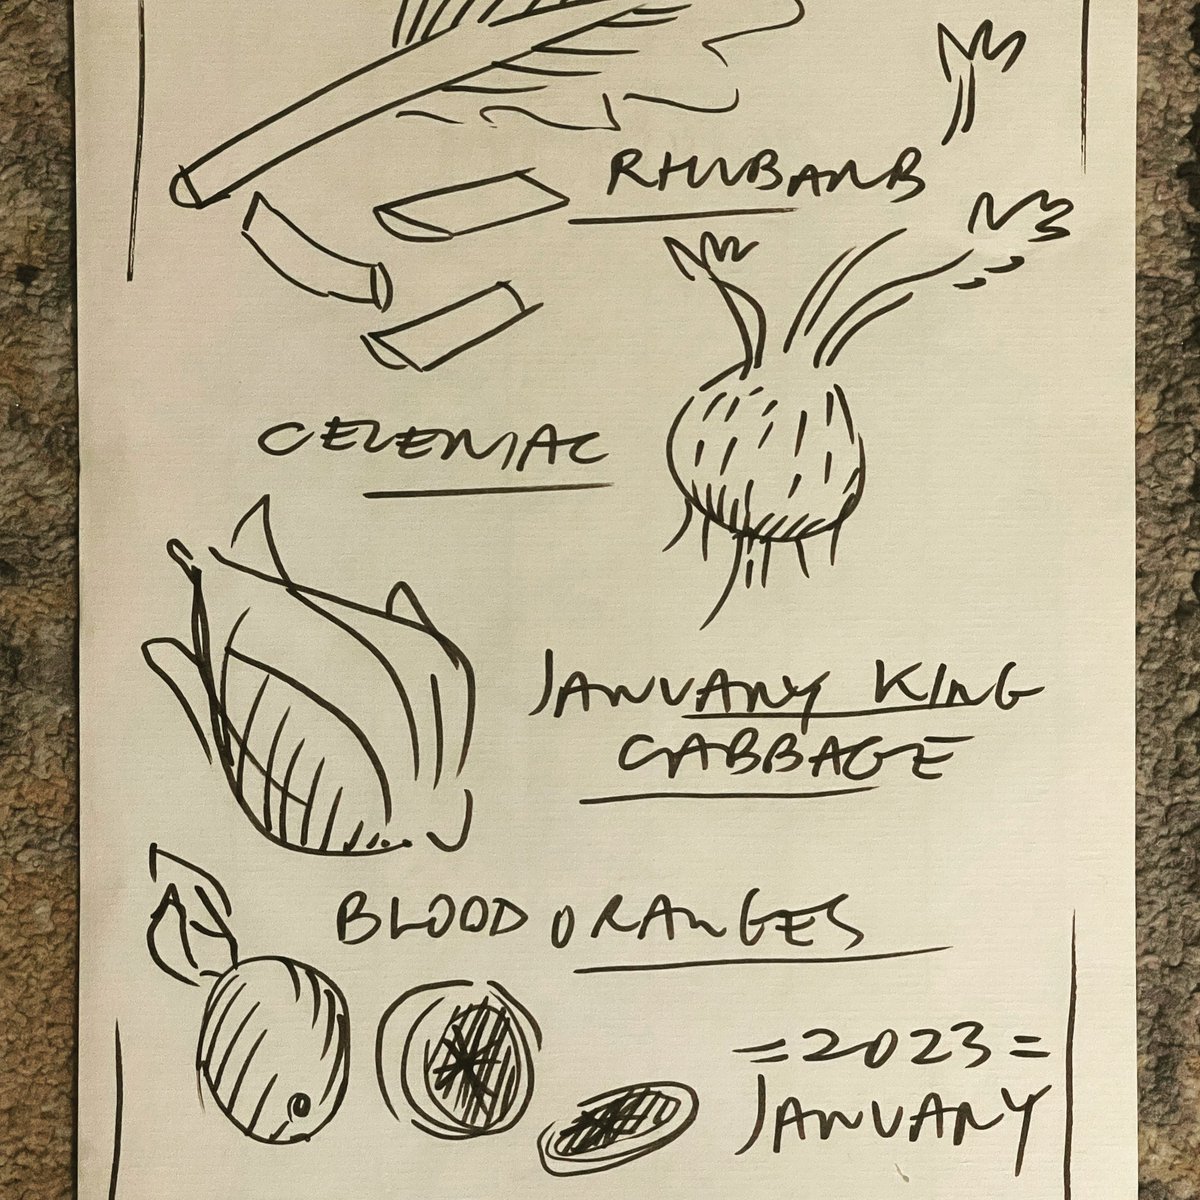 RHUBARB
CELERIAC
JANUARY KING
CABBAGE
BLOOD ORANGES
=2023=
JANUARY